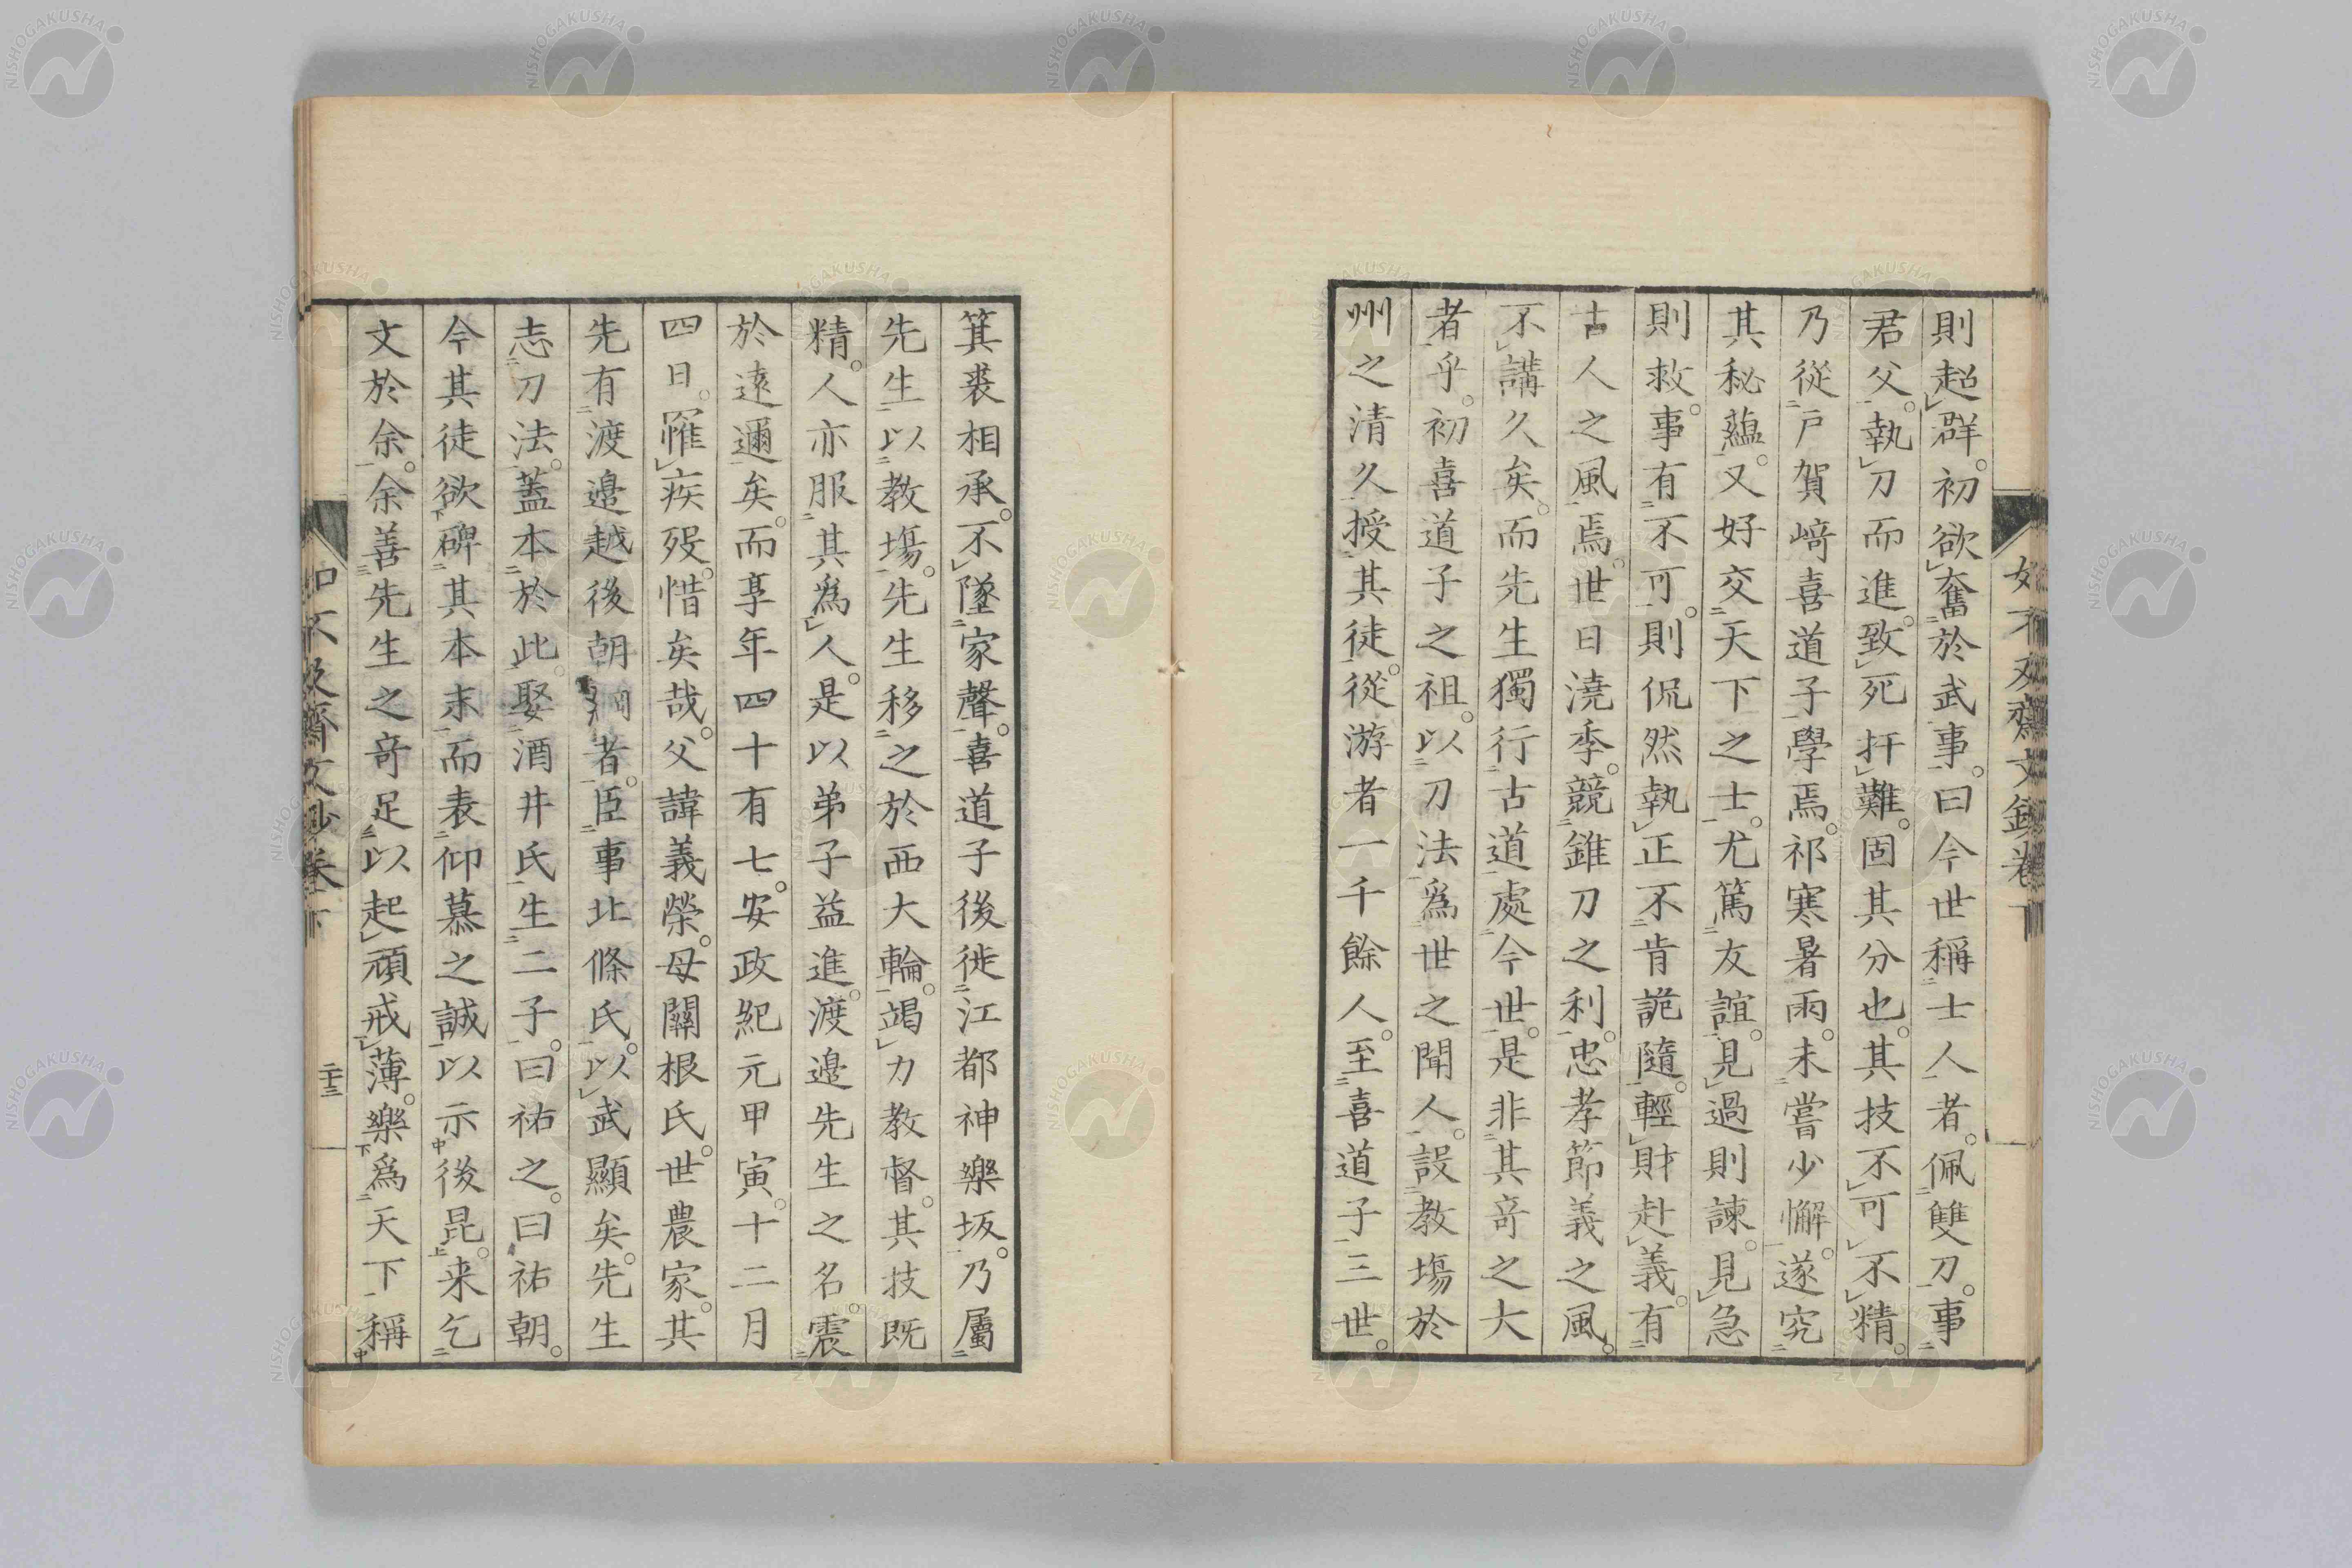 則超群。初欲奮於武事。曰今世稱士人者。佩雙刀。事
君父。執刀而進。致死扞難。固其分也。其技不可不精。
乃從戸賀﨑喜道子學焉。祁寒暑雨。未嘗少懈。遂究
其秘蘊。又好交天下之士。尤篤友誼。見過則諫。見急
則救。事有不可。則侃然執正不肯詭隨。輕財赴義。有
古人之風焉。世日澆季。競錐刀之利。忠孝節義之風。
不講久矣。而先生獨行古道。處今世。是非其竒之大
者乎。初喜道子之祖。以刀法爲世之聞人。設教塲於
州之清久。授其徒。從游者一千餘人。至喜道子三世。
箕裘相承。不墜家聲。喜道子後徙江都神樂坂。乃屬
先生以教塲。先生移之於西大輪。竭力教督。其技既
精。人亦服其爲人。是以弟子益進。渡邉先生之名。震
於遠邇矣。而享年四十有七。安政紀元甲寅。十二月
四日。罹疾歿。惜矣哉。父諱義榮。母關根氏。世農家。其
先有渡邉越後朝綱者。臣事北條氏。以武顯矣。先生
志刀法。蓋本於此。娶酒井氏生二子。曰祐之。曰祐朝。
今其徒欲碑其本末而表仰慕之誠以示後昆。来乞
文於余。余善先生之竒足以起頑戒薄。樂爲天下稱
如不及齋文鈔卷下
二十三
NISHOGAKUSHA